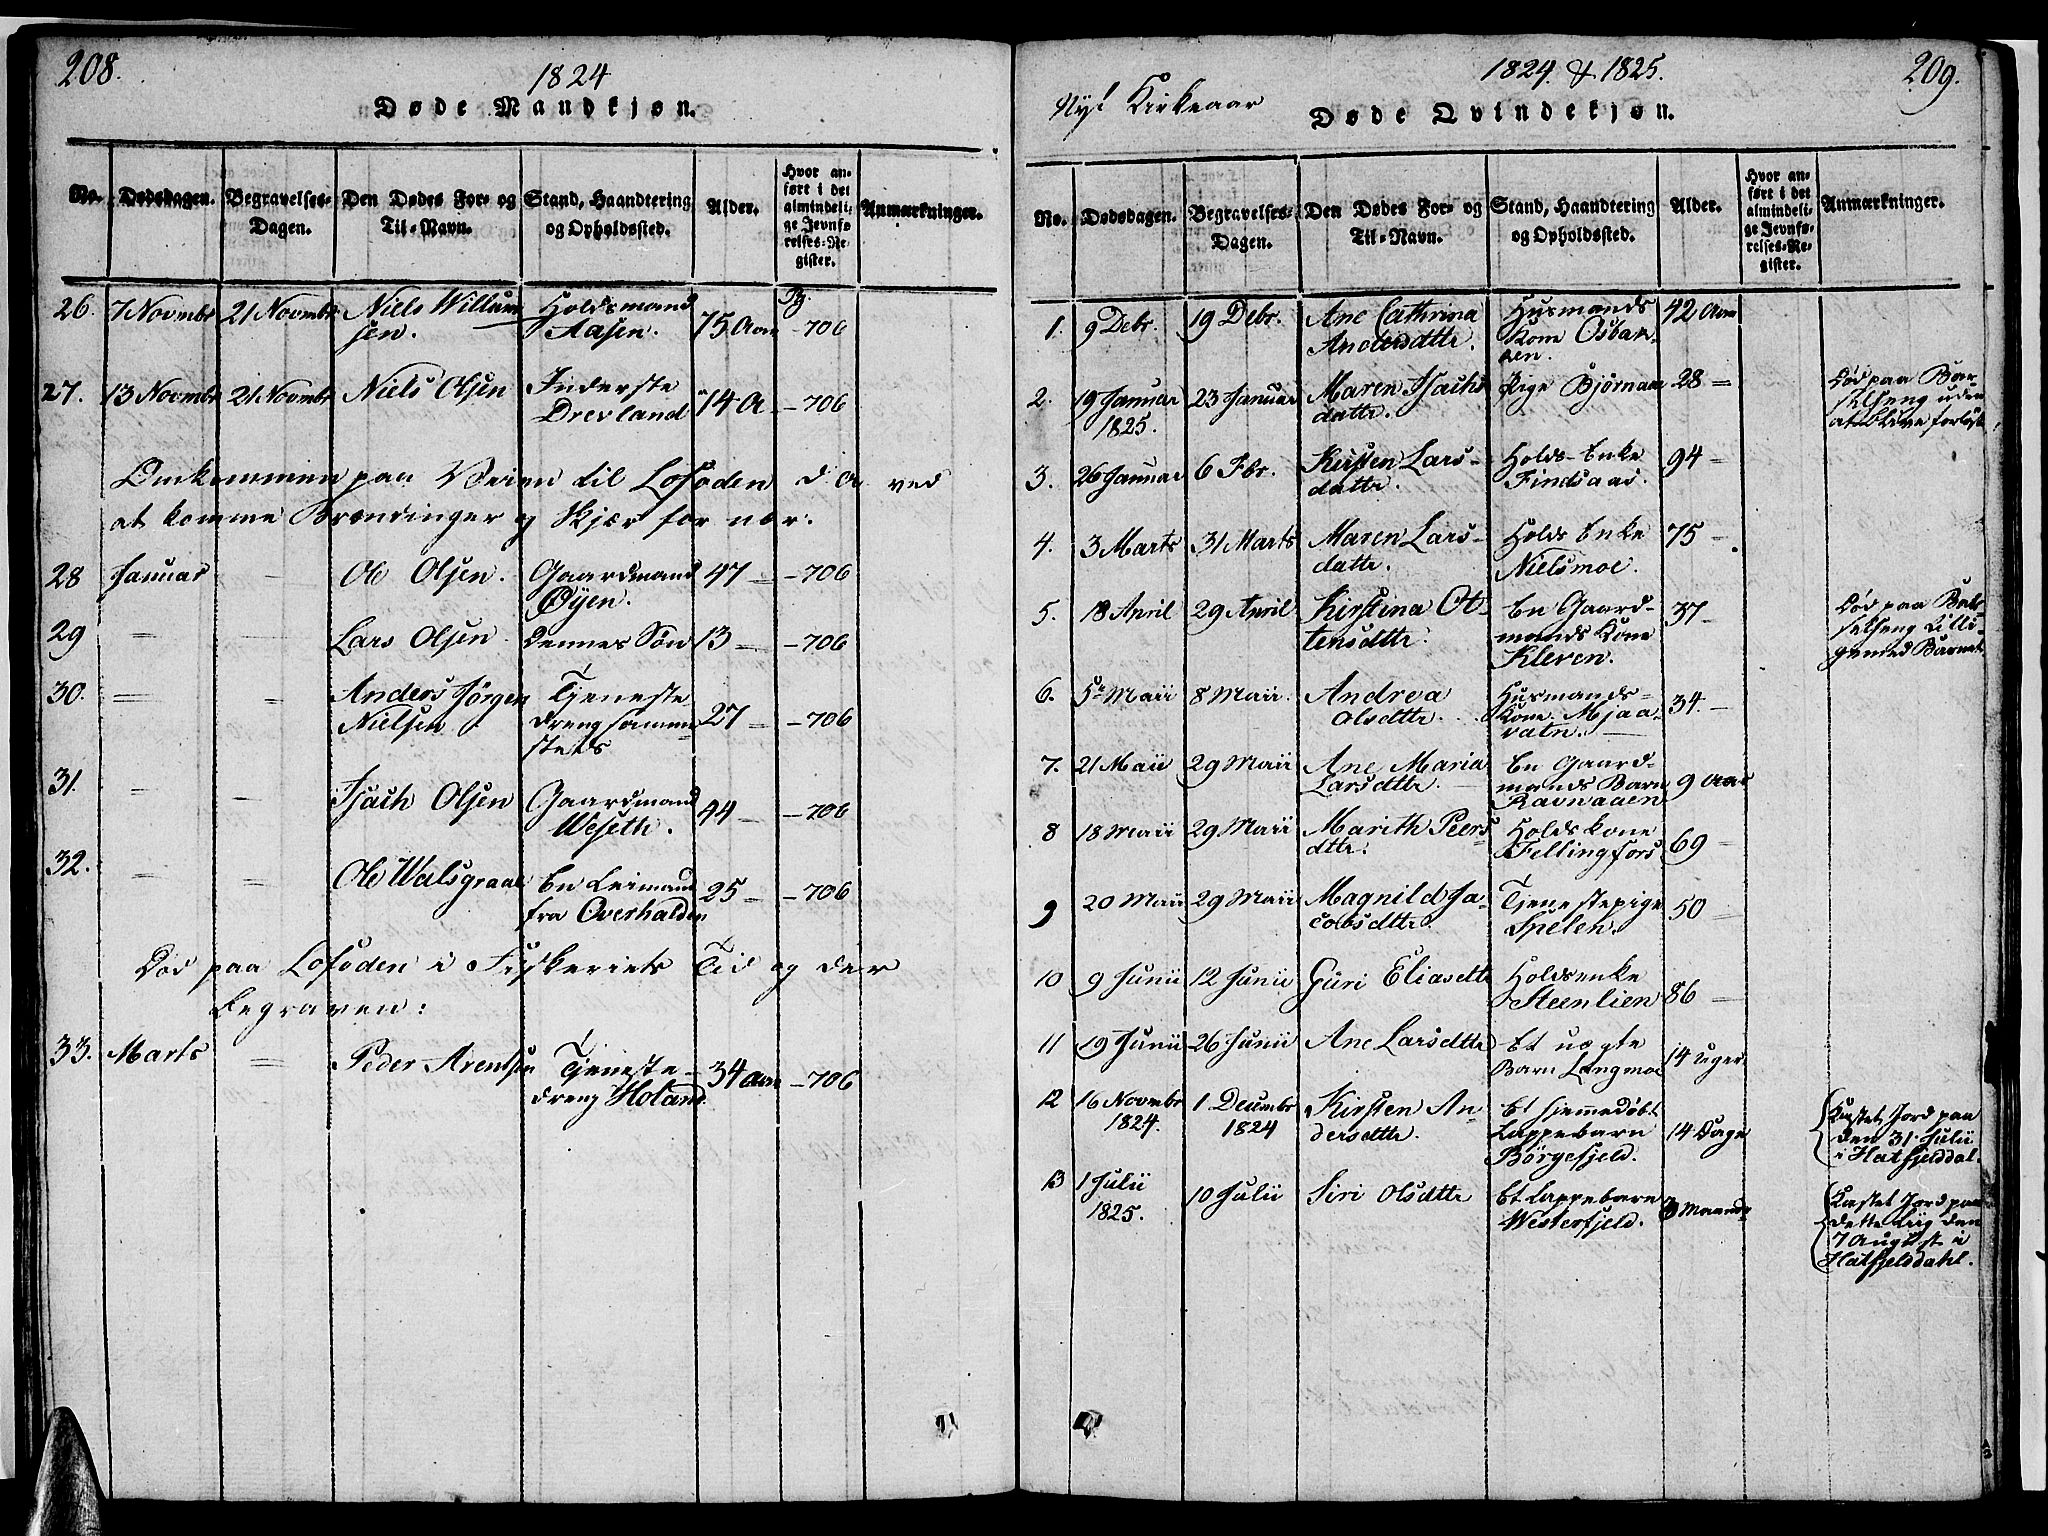 208.
1824
Døde Mandkjøn.
No. Dødsdagen. Begravelses-Dagen. Den Dødes For- og Til-Navn. Stand, Haandtering og Opholdssted. Alder. Hvor anført i det almindelige Jevnførelses-Register. Anmærkninger.
26. 7 Novmbr 21 Novmbr Niels Willumsen. Holdsmand Aasen. 75 Aar -706
27. 13 Novmbr 21 Novmbr Niels Olsen Inderste Drevland 14 A -706
Omkommen paa Veien til Lofoden d A ved
at komme Brændinger og Skjær for nær:
28 Januar — Ole Olsen. Gaardmand Øyen. 47 — -706
29 — — Lars Olsen. Dennes Søn 13 — -706
30. — — Anders Jørgen Nielsen Tjeneste dreng sammesteds 27 — -706
31. — — Isach Olsen Gaardmand Weseth. 44 — -706
32. — — Ole Walsgraae En Leimand fra Overhalden 25 — -706
Død paa Lofoden i Fiskeriets Tid og der
begraven:
33. Marts — Peder Arentsen Tjeneste-dreng Holand 34 Aar -706
1824. & 1825.
209.
Nyt Kirkeaar
Døde Qvindekjøn.
No. Dødsdagen. Begravelses-Dagen. Den Dødes For- og Til-Navn. Stand, Haandtering og Opholdssted. Alder. Hvor anført i det almindelige Jevnførelses-Register. Anmærkninger.
1. 9 Debr. 19 Debr. Ane Cathrina Andersdttr. Husmands Kone 42 Aar
2. 19 Januar 1825. 23 Januar Maren Isachsdattr. Pige Bjørnaae 28 — Død paa Barselseng uden at blive forløst
3. 26 Januar 6 Fbr. Kirsten Larsdattr. Holds-Enke Findsaas. 94 —
4. 3 Marts 31 Marts Maren Larsdattr. Holds Enke Nielsmoe. 75 —
5. 18 April 29 April Kirstina Ottensdttr. En Gaardmands Kone Kleven. 37 — Død paa Barselseng tilligemed Barnet
6. 5te Maii 8 Maii. Andrea Olsdttr. Husmands-Kone Mjaavatn. 34. —
7. 21 Maii 29 Maii Ane Maria Larsdttr. En Gaardmands Barn Ravnaaen 9 Aar
8 18 Maii 29 Maii Marith Peersdttr. Holdskone Fellingfors 69 —
9 20 Maii 29 Maii Magnild Jacobsdttr. Tjenestepige Spelen. 50 —
10 9 Junii 12 Junii Guri Eliasdttr Holdsenke Steenlien 86 —
11 19 Junii 26 Junii Ane Larsdttr Et uægte Barn Langmoe 14 Uger
12 16 Novmbr 1824. 1 Decembr 1824 Kirsten Andersdttr. Et hjemmedøbt Lappebarn Børgefjeld. 14 Dage Kastet Jord paa den 31 Julii i Hatfjelddal.
13 1 Julii 1825. 10 Julii Siri Olsdttr Et Lappebarn Westerfjeld. 3 Maaneder Kastet Jord paa dette Liig den 7 August i Hatfjelddahl.